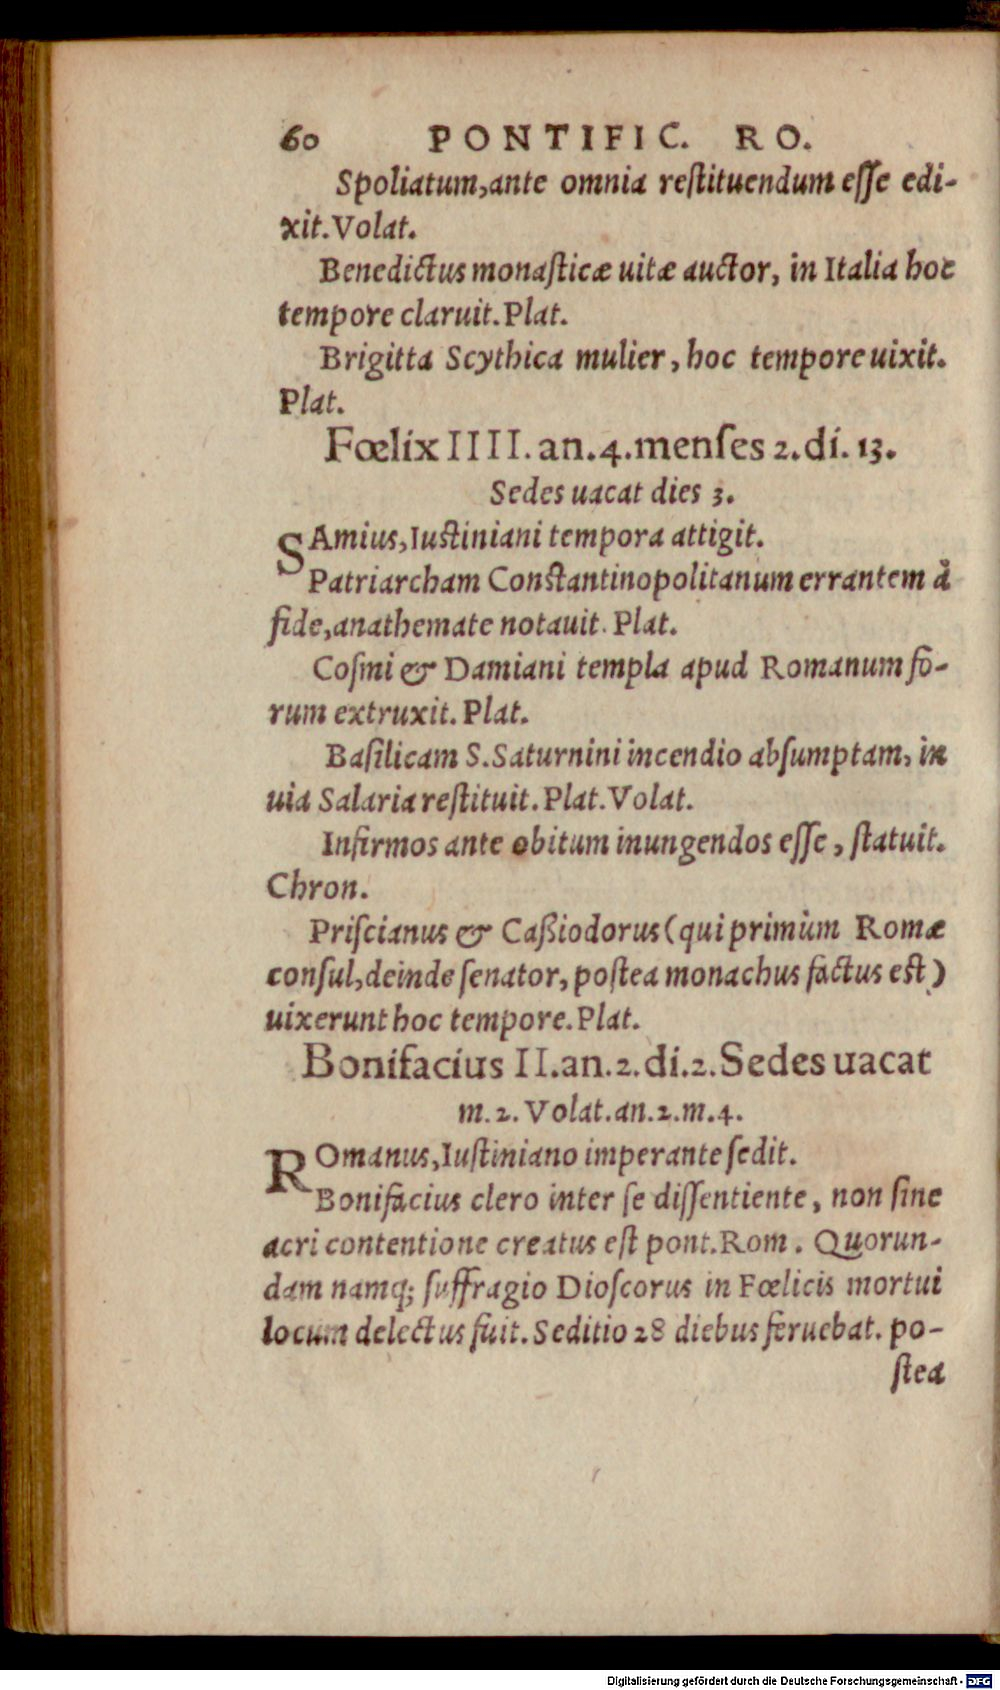 60 PONTIFIC. RO.
Spoliatum, ante omnia reſtituendum eſſe edi-
xit. Volat.
Benedictus monaſticæ uitæ auctor, in Italia hoc
tempore claruit. Plat.
Brigitta Scythica mulier, hoc tempore uixit.
Plat.
Fœlix IIII. an. 4. menſes 2. di. 13.
Sedes uacat dies 3.
SAmius, Iuſtiniani tempora attigit.
Patriarcham Conſtantinopolitanum errantem à
fide, anathemate notauit. Plat.
Coſmi & Damiani templa apud Romanum fo-
rum extruxit. Plat.
Baſilicam S. Saturnini incendio abſumptam, in
uia Salaria reſtituit. Plat. Volat.
Infirmos ante obitum inungendos eſſe, ſtatuit.
Chron.
Priſcianus & Caßiodorus (qui primùm Romæ
conſul, deinde ſenator, poſtea monachus factus eſt)
uixerunt hoc tempore. Plat.
Bonifacius II. an. 2. di. 2. Sedes uacat
m. 2. Volat. an. 2. m. 4.
ROmanus, Iuſtiniano imperante ſedit.
Bonifacius clero inter ſe diſſentiente, non ſine
acri contentione creatus eſt pont. Rom. Quorun-
dam namq; ſuffragio Dioſcorus in Fœlicis mortui
locum delectus fuit. Seditio 28 diebus feruebat. po-
ſtea
Digitalisierung gefördert durch die Deutsche Forschungsgemeinschaft - DFG